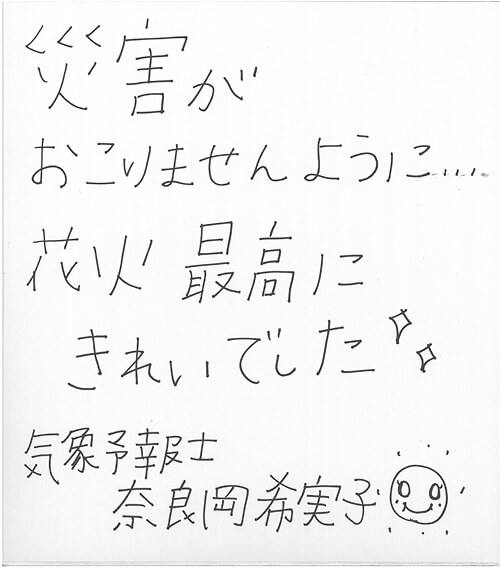 災害が
おこりませんように....
花火 最高に
きれいでした
気象予報士
奈良岡希実子